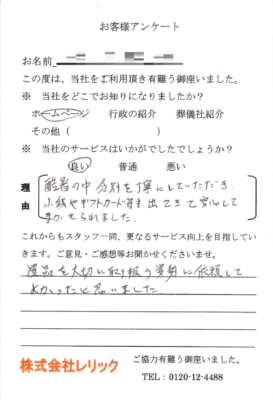 お客様アンケート
お名前
この度は、当社をご利用頂き有難う御座いました。
※ 当社をどこでお知りになりましたか？
ホームページ 行政の紹介 葬儀社紹介
その他（ ）
※ 当社のサービスはいかがでしたでしょうか？
良い 普通 悪い
理由
酷暑の中 分別を丁寧にしていただき
小銭やギフトカード等も出てきて安心して
まかせられました。
これからもスタッフ一同、更なるサービス向上を目指してい
きます。ご意見・ご感想等お聞かせくださいませ。
遺品を大切に取り扱う姿勢に依頼して
よかったと思いました
株式会社レリック
ご協力有難う御座いました。
TEL：0120-12-4488